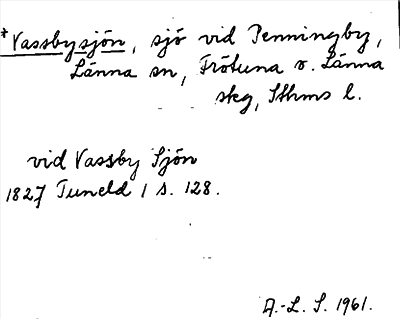 *Vassbysjön, sjö vid Penningby,
Länna sn, Frötuna o. Länna
skg, Sthms l.
vid Vassby Sjön
1827 Tuneld 1 s. 128.
A.-L. S. 1961.